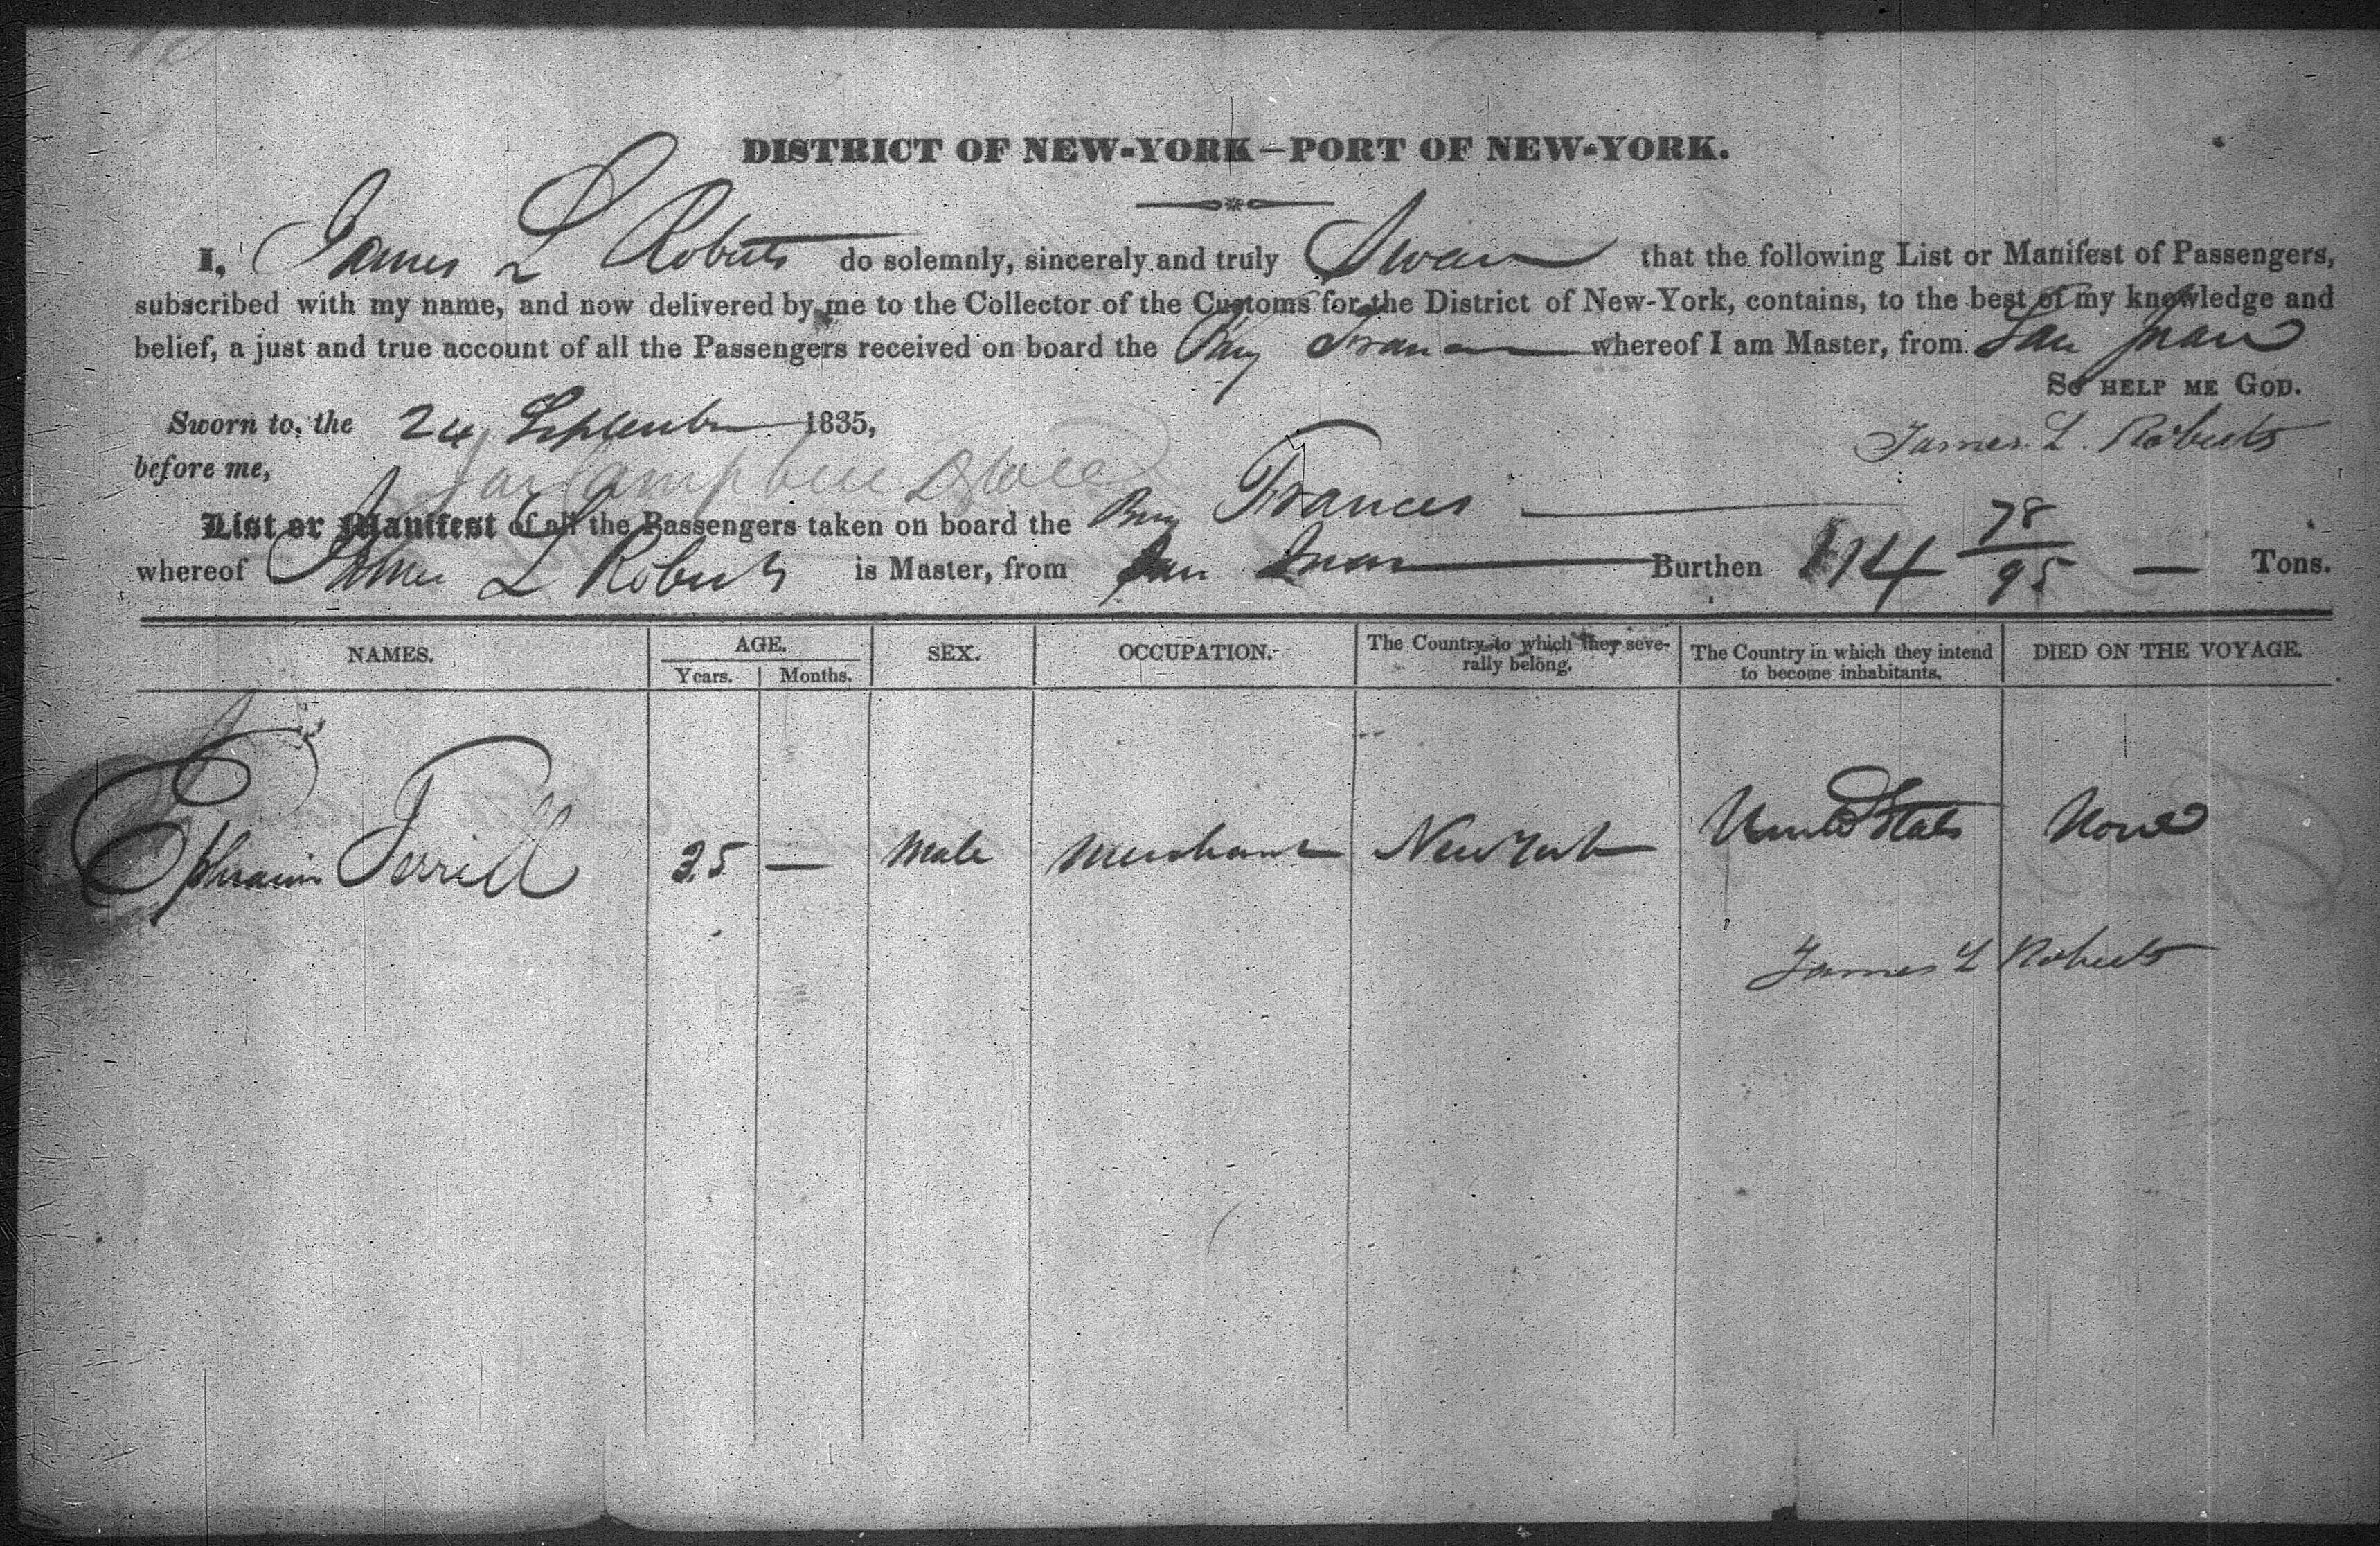 DISTRICT OF NEW-YORK—PORT OF NEW-YORK.
I, James L Roberts do solemnly, sincerely and truly Swear that the following List or Manifest of Passengers,
subscribed with my name, and now delivered by me to the Collector of the Customs for the District of New-York, contains, to the best of my knowledge and
belief, a just and true account of all the Passengers received on board the Brig Frances whereof I am Master, from San Juan
So HELP ME GOD.
Sworn to, the 24 September 1835,
James L. Roberts
before me,
List or Manifest of all the Passengers taken on board the Brig Frances
whereof James L Roberts is Master, from San Juan Burthen 114 78/95 — Tons.
NAMES. AGE. SEX. OCCUPATION. The Country to which they seve- The Country in which they intend DIED ON THE VOYAGE.
Years. Months. rally belong. to become inhabitants.
Ephraim Terrill 25 — Male Merchant New York United States None
James L Roberts